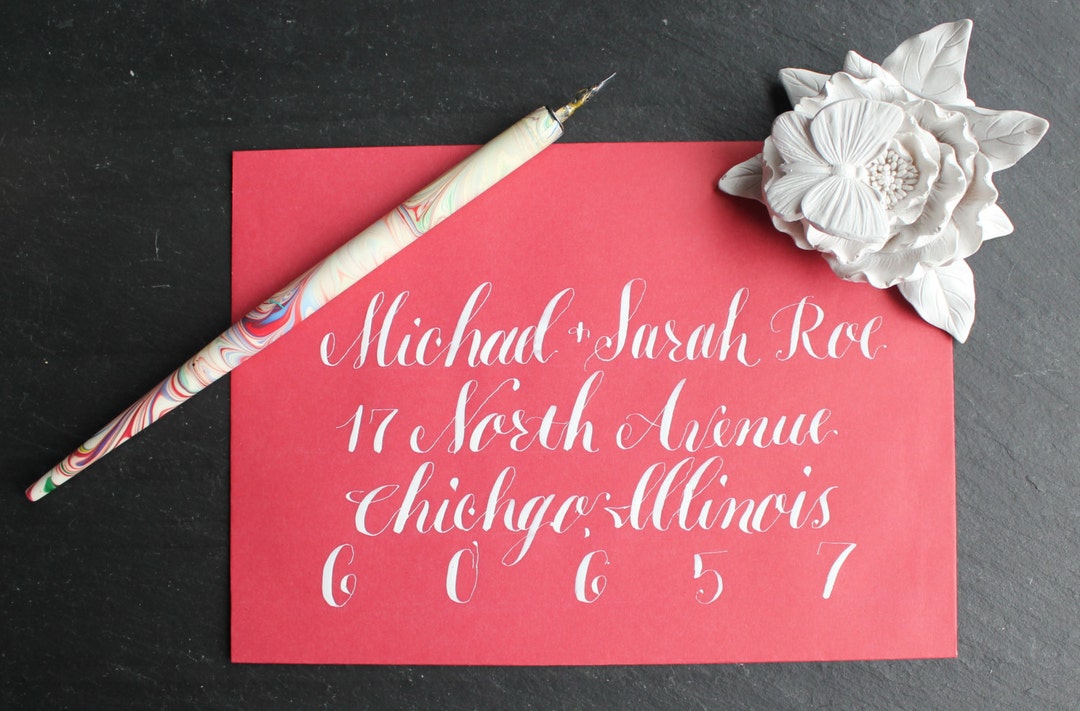 Michael + Sarah Roe
17 North Avenue
Chichgo, Illinois
60657